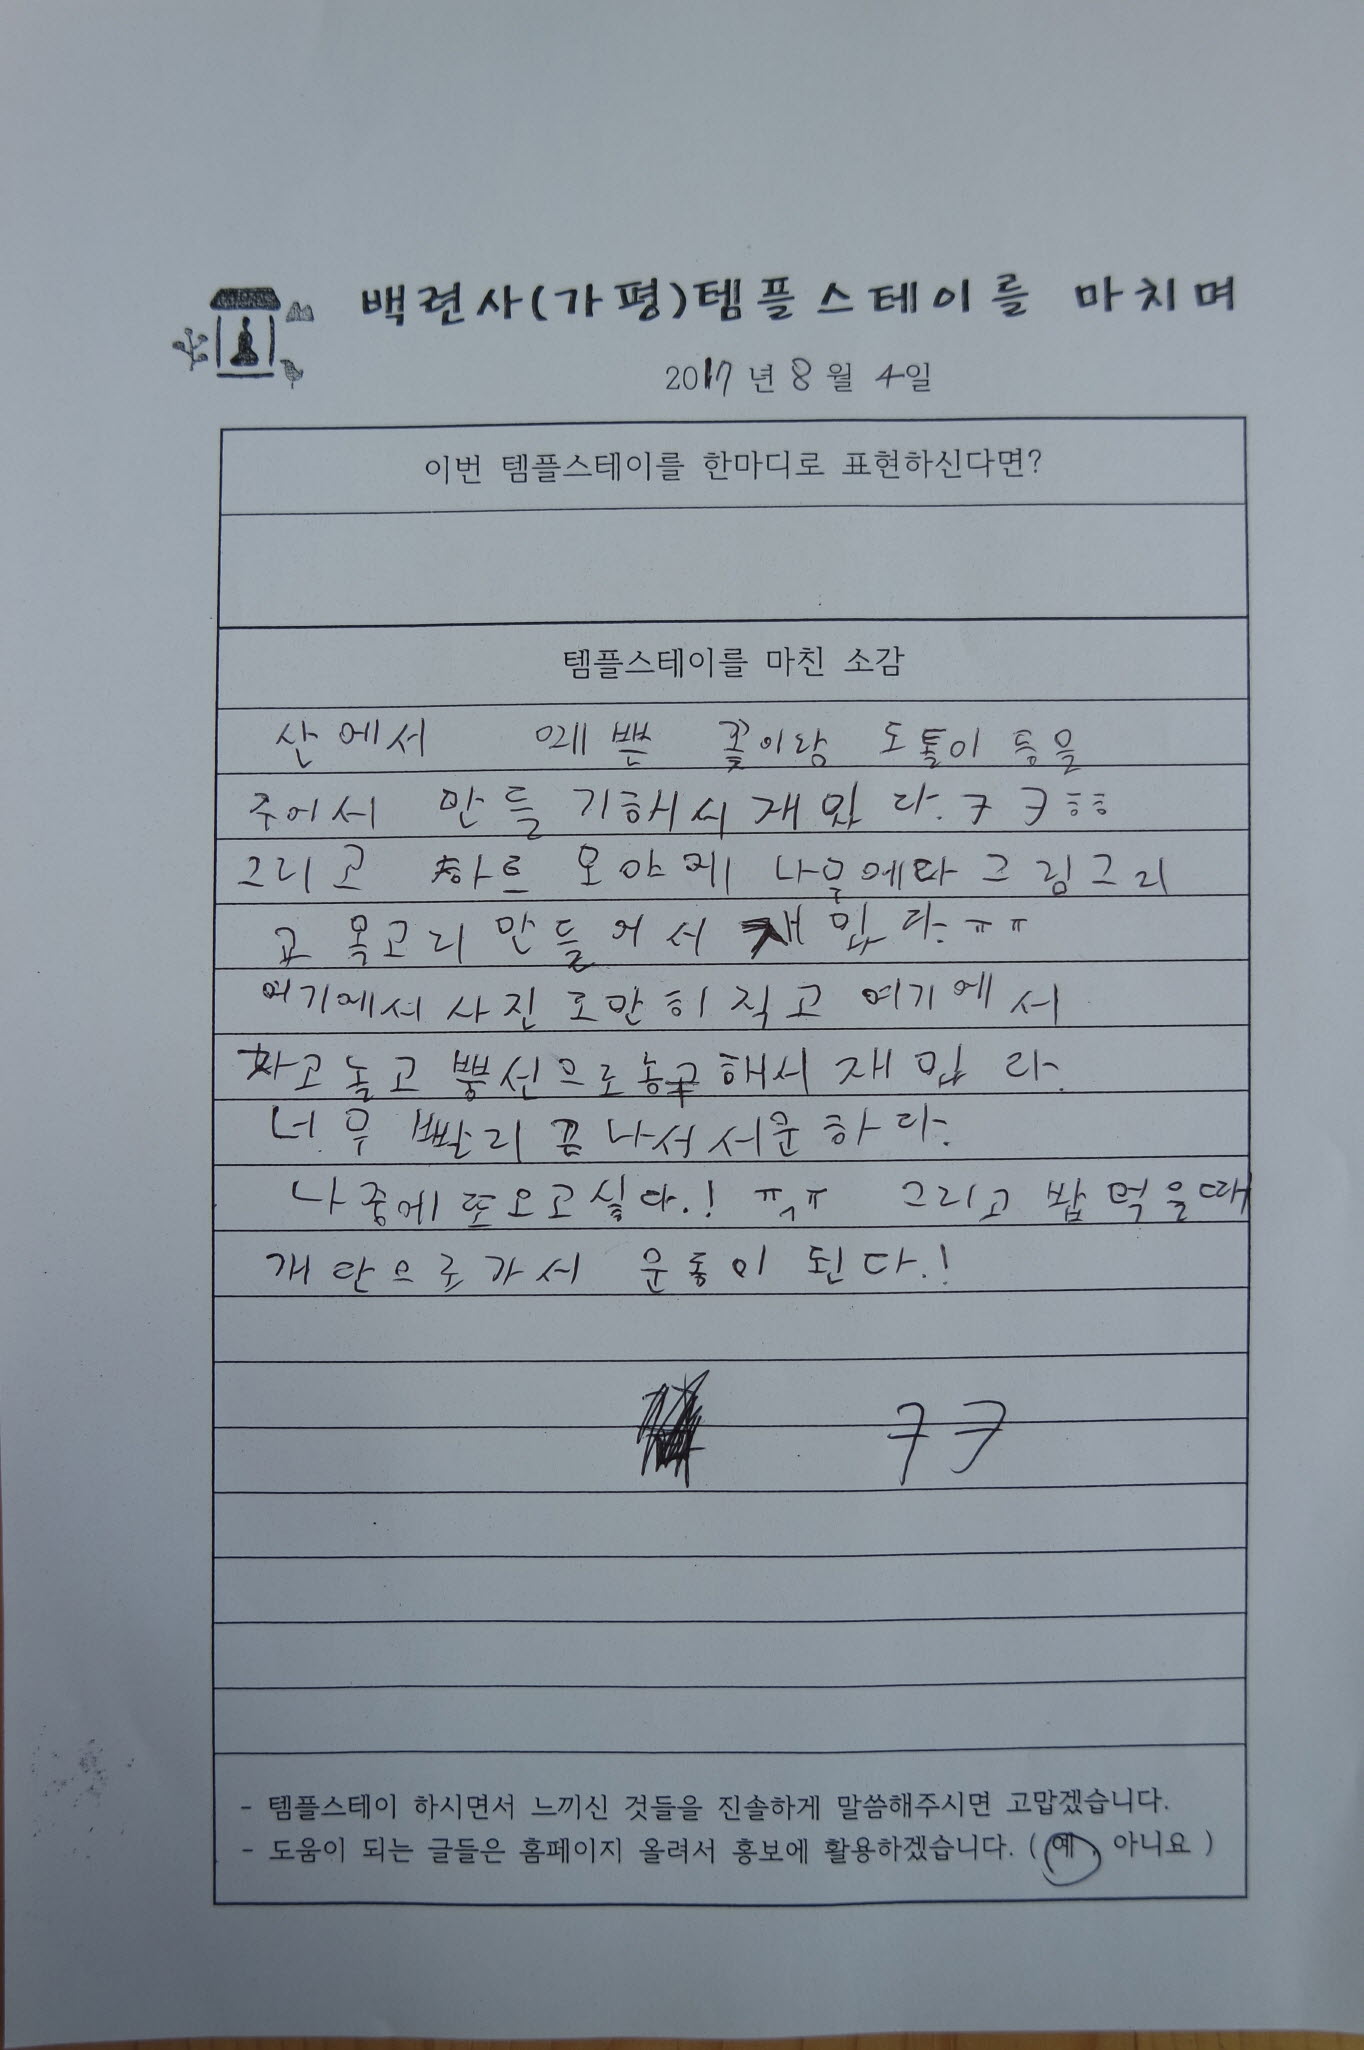 백련사(가평)템플스테이를 마치며
2017년 8월 4일
이번 템플스테이를 한마디로 표현하신다면?
템플스테이를 마친 소감
산에서 예쁜 꽃이랑 도톨이 등을
주어서 만들기해서 재밌다. ㅋㅋㅎㅎ
그리고 하트 모야에 나무에다 그림그리
고 목고리 만들어서 재밌다. ㅠㅠ
여기에서 사진도 만히 직고 여기에서
자고 놀고 뿡선으로 농구해서 재밌다.
너무 빨리 끝나서 서운하다.
나중에 또 오고싶다.! ㅠㅠ 그리고 밥 먹을때
개단으로가서 운동이 된다.!
ㅋㅋ
- 템플스테이 하시면서 느끼신 것들을 진솔하게 말씀해주시면 고맙겠습니다.
- 도움이 되는 글들은 홈페이지 올려서 홍보에 활용하겠습니다. ( 예, 아니요 )